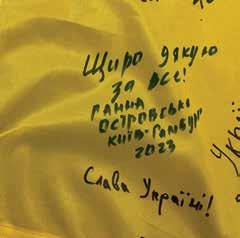 Щиро дякую
за все!
ГАННА
ОСТРОВСЬКІ
КИЇВ-ГАМБУРГ
2023
Слава Україні!